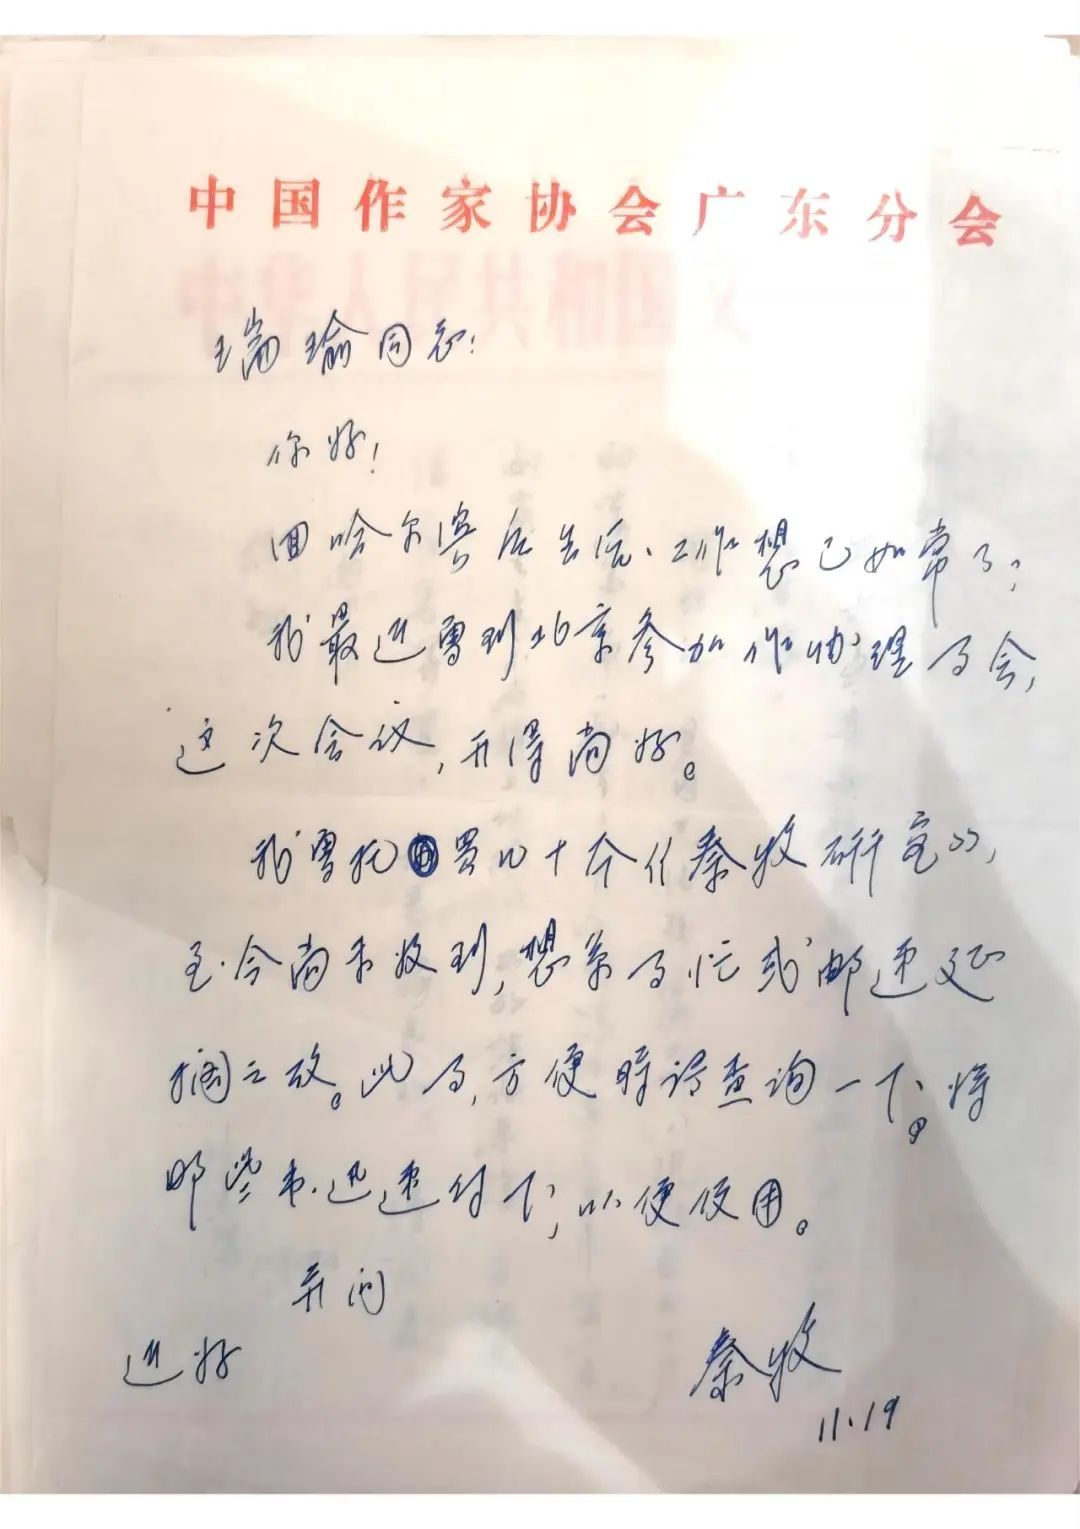 中国作家协会广东分会
中华人民共和国文
瑞瑜同志:
你好!
回哈尔滨后生活、工作想已如常了?
我最近曾到北京参加作协理事会,
这次会议,开得尚好。
我曾托买几十本《秦牧研究》,
至今尚未收到,想系事忙或邮递延
搁之故。此事,方便时请查询一下。将
那些书迅速付下,以便使用。
并问
近好
秦牧
11.19